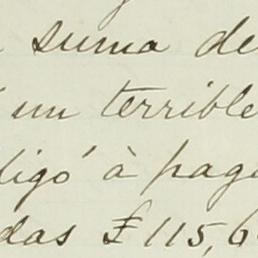 suma de
un terrible
ligó à pag
das £115,6